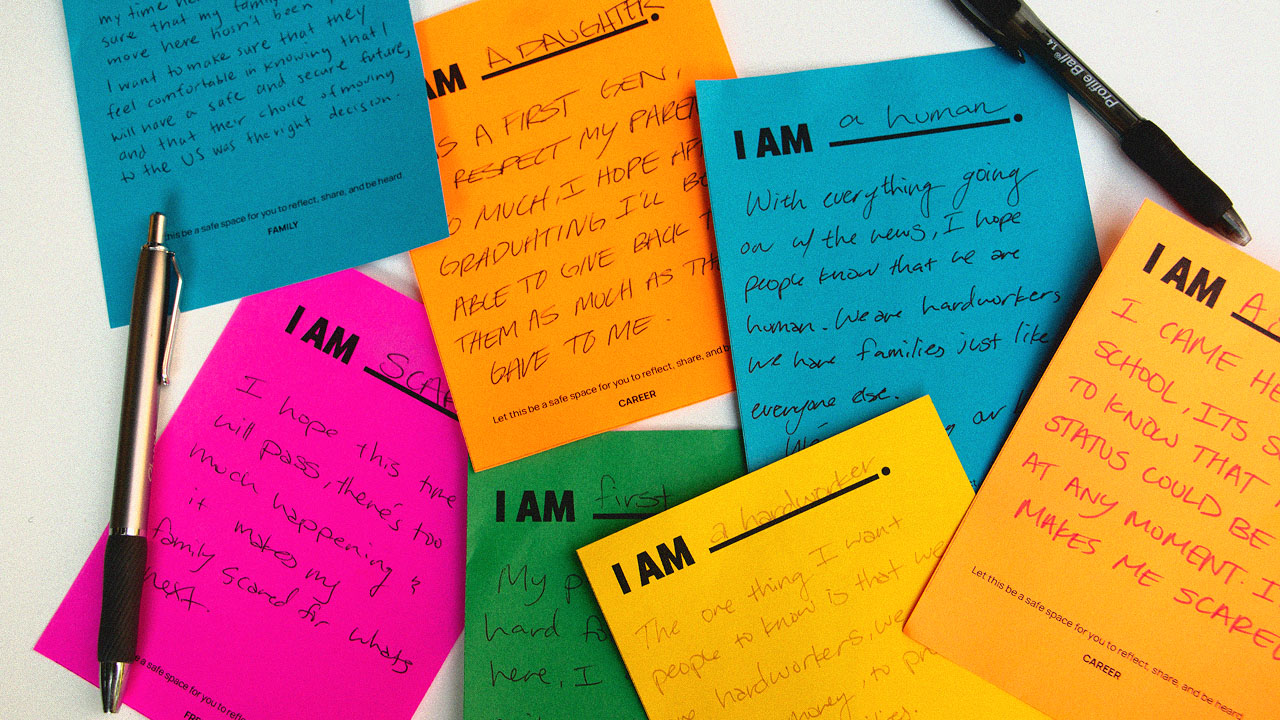 my time he
sure that my family
move here hasn't been
I want to make sure that they
feel comfortable in knowing that I
will have a safe and secure future,
and that their choice of moving
to the US was the right decision
this be a safe space for you to reflect, share, and be heard.
FAMILY
AM A DAUGHTER.
S A FIRST GEN,
RESPECT MY PAREN
O MUCH, I HOPE AF
GRADUATING I'LL BE
ABLE TO GIVE BACK T
THEM AS MUCH AS TH
GAVE TO ME.
Let this be a safe space for you to reflect, share, and b
CAREER
I AM a human.
With everything going
on w/ the news, I hope
people know that we are
human. We are hardworkers
we have families just like
everyone else.
Profile Ball 1.4
I AM A
I CAME HE
SCHOOL, ITS S
TO KNOW THAT
STATUS COULD BE
AT ANY MOMENT. I
MAKES ME SCARED
Let this be a safe space for you to reflect, share, and be heard.
CAREER
I AM SCAR
I hope this time
will pass, there's too
much happening &
it makes my
family scared for whats
next.
be a safe space for you to reflect
FRE
I AM first
My p
hard fo
here, I
I AM a hardworker.
The one thing I want
people to know is that we
hardworkers, we
money, to pr